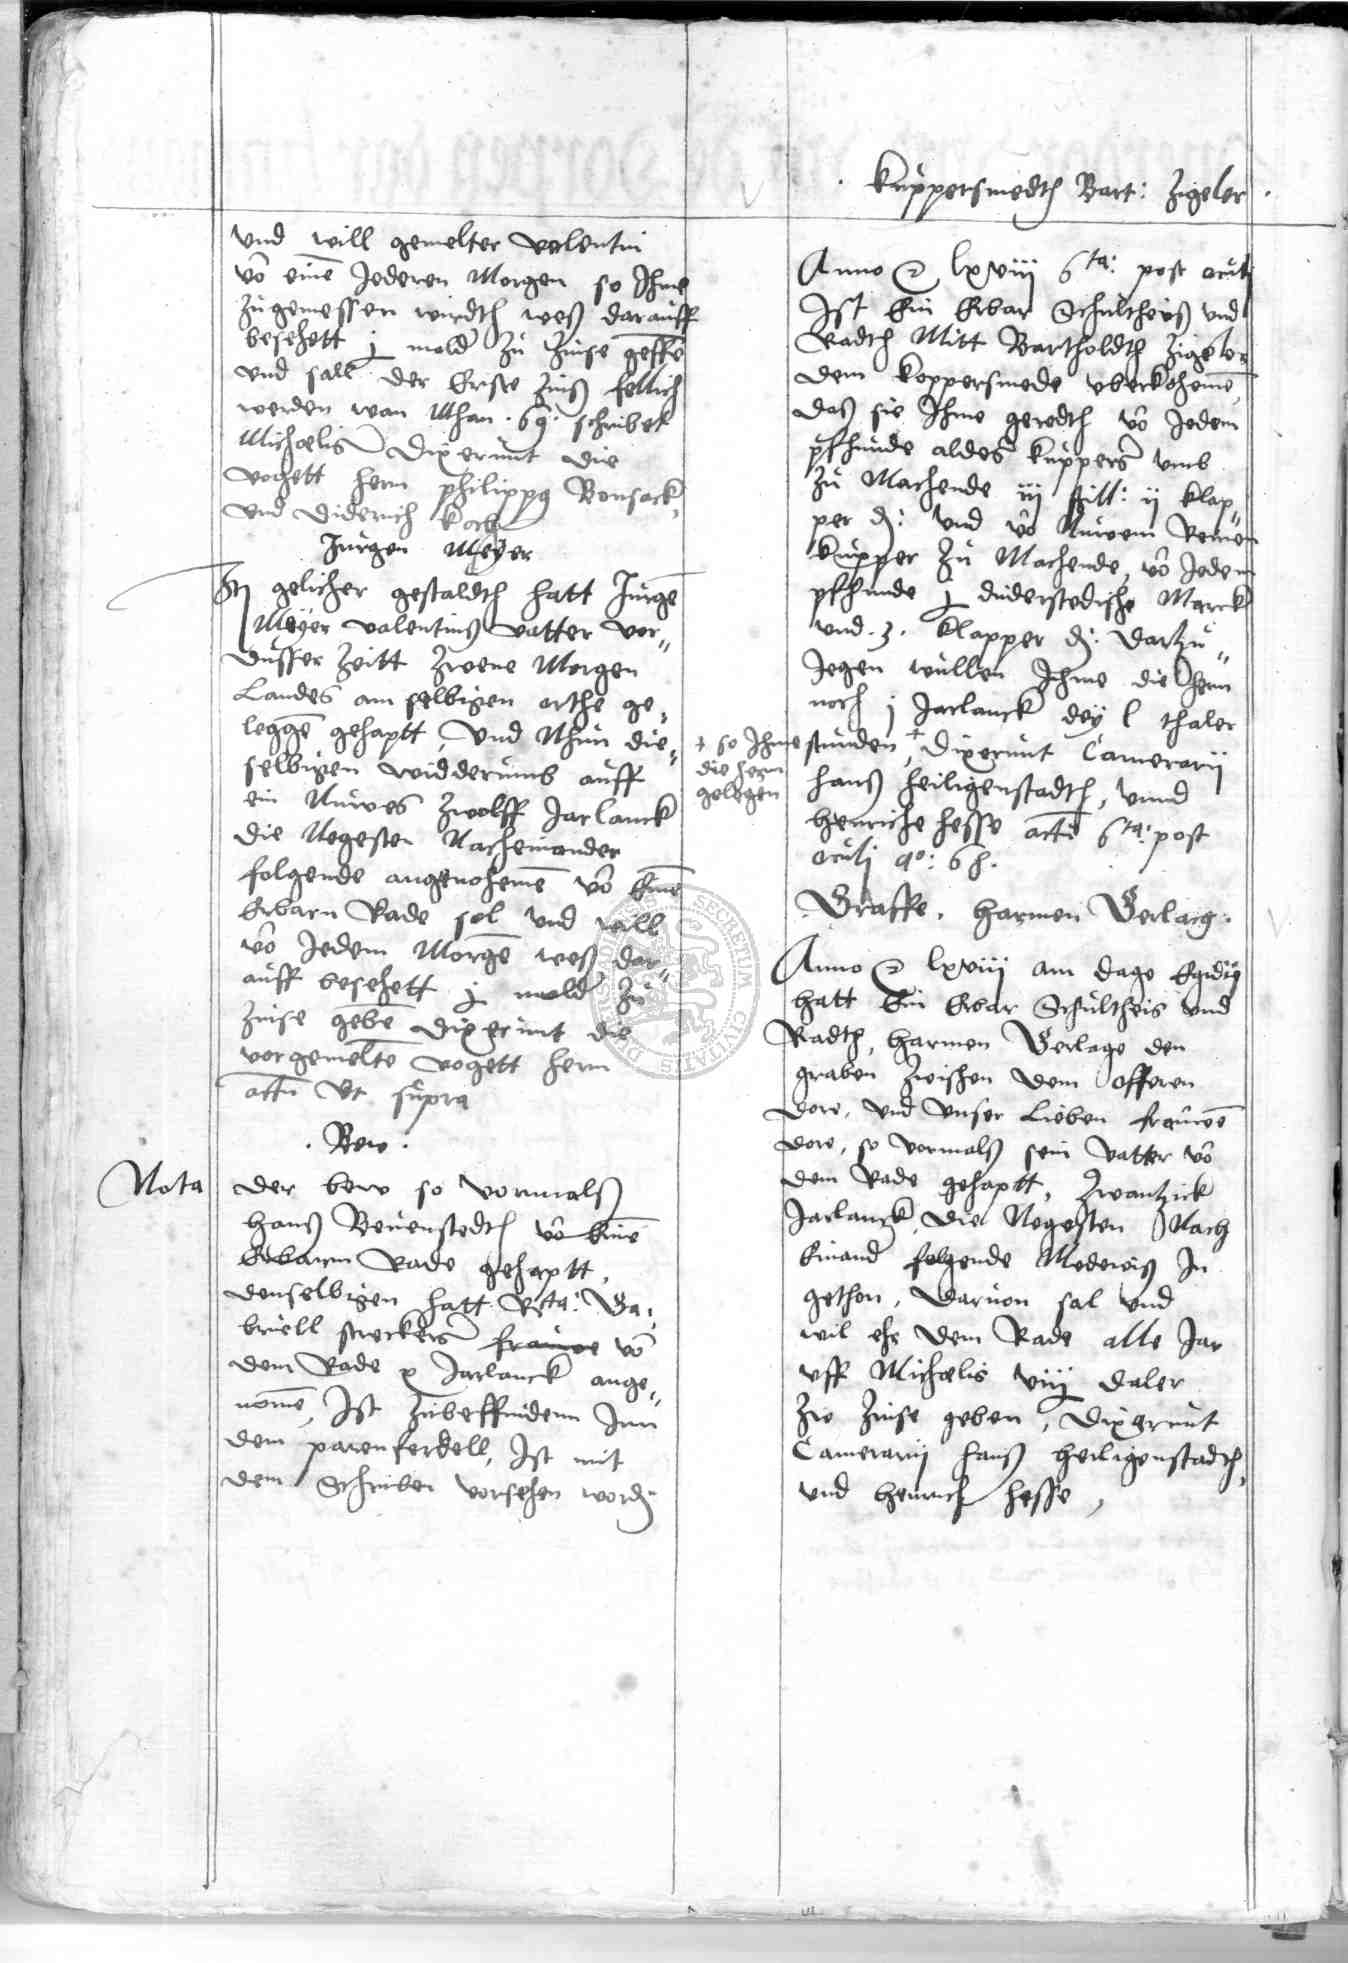 vnd will gemelter valentin
vō einē Jederen Morgen so Ihme
Zugemessen wirdth weß darauff
besehett j mald Zu Zinse geffē
vnd sall der Erste Zinß fellich
werden wan Mhan . 69 . schribet
Michaelis Dixerunt die
vogett hern philippg Bonsack
vnd Diderich Koch
Jurgen Meyer
In gelicher gestaldth hatt Jurgē
Meyer valentins vatter vor„
dusser Zeitt Zwene Morgen
Landes am selbigen orthe ge„
leggē gehaptt, Vnd Nhun die„
selbigen widderumb auff
ein Nuwes Zwolff Jarlanck
die Negesten Nacheinander
folgende angenohemē vō Einē
Erbarn Rade sol vnd will
vō Jedem Morgē weß dar„
auff besehett j mald Zu
Zinse gebē Dixerunt die
vorgemeltē vogett hern
actū Vt supra
. Bew .
Nota der bew so vormalß
Hanß Beuenstedth vō Einē
Erbarm Rade gehaptt,
denselbigen hatt Ga„
briell streckers frauwe vō
dem Rade x Jarlanck ange„
nomē, Ist Zubeffindenn Inn
dem parenferdell, Ist mit
dem Schriben vorsehen word
. Kuppersmedth Bart: Zigeler .
Anno lxviij 6ta: post oculi
Ist Ein Erbar Schultheiß vnd
Radth Mitt Bartholdth Zigeler
dem koppersmede vberkohemē
daß sie Ihme geredth vō Jedem
pfhunde aldes kuppers vmb
Zu Machende iij ß ij klap„
per ₰: vnd vō Nuwem Reinen
kupper Zu Machende, vō Jedem
pfhunde j duderstedische Marck
vnd . 3 . klapper ₰: dartzu„
Jegen wullen Ihme die Hern
noch j Jarlanck dey l thaler
+ so Ihme die hern gelegen
stunden +, Dixerunt Camerarij
Hanß Heiligenstadth, vnnd
Henriche Hesse actū 6ta: post
oculi ao: 68.
. Graffe . Harmen Gerlaig .
Anno lxviij am dage Egidij
hatt Ein Erbar Schultheis vnd
Radth, Harmen Gerlage den
graben Zwischen dem Offeren
dore, vnd Vnser Lieben frauwē
dore, so vormalß sein vatter vō
dem Rade gehaptt, Zwantzick
Jarlanck die Negesten Nach
Einand folgende Mederoiß In
gethon, daruon sal vnd
wil ehr dem Rade alle Jar
vff Michaelis viij daler
Zw Zinse geben, Dixerunt
Camerarij Hanß Heiligenstadth,
vnd Henrich Hesse,
SECRETUM CIVITATIS